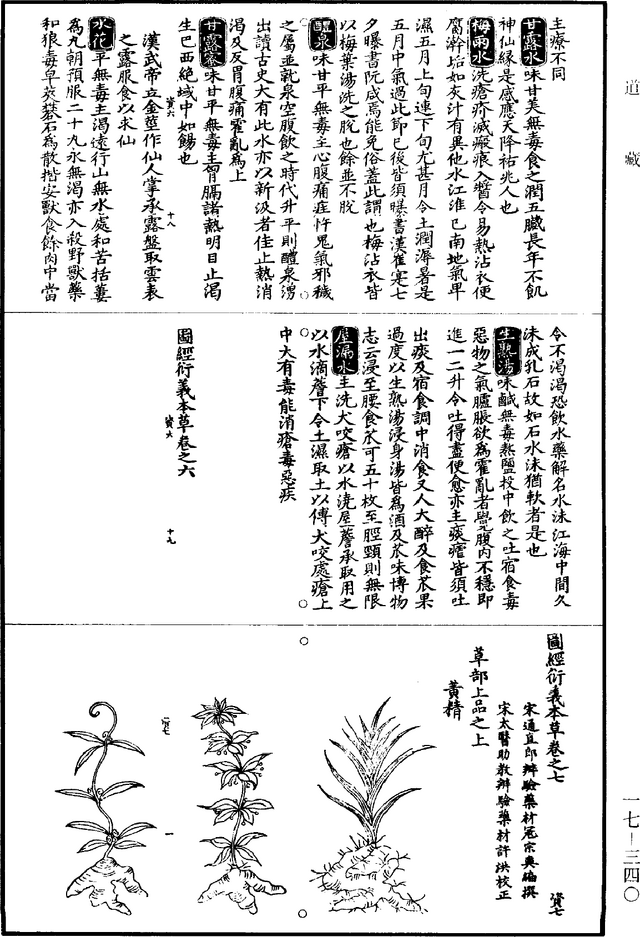 道藏
主療不同
甘露水味甘美無毒食之潤五臟長年不飢
神仙緣是感應天降祐兆人也
梅雨水洗瘡疥滅瘢痕入醬令易熟沾衣便
腐澣垢如灰汁有異他水江淮已南地氣卑
濕五月上旬連下旬尤甚月令土潤溽暑是
五月中氣過此節已後皆須曝書漢崔寔七
夕曝書阮咸焉能免俗蓋此謂也梅沾衣皆
以梅葉湯洗之脫也餘並不脫
醴泉味甘平無毒主心腹痛疰忤鬼氣邪穢
之屬並就泉空腹飲之時代升平則醴泉湧
出讀古史大有此水亦以新汲者佳止熱消
渴及反胃腹痛霍亂為上
甘露蜜味甘平無毒主胷膈諸熱明目止渴
生巴西絕域中如餳也
資六
十八
漢武帝立金莖作仙人掌承露盤取雲表
之露服食以求仙
水花平無毒主渴遠行山無水處和苦括蔞
為丸朝預服二十九永無渴亦入殺野獸藥
和狼毒皁莢礜石為散揩安獸食餘肉中當
令不渴渴恐飲水藥解名水沫江海中間久
沫成乳石故如石水沫猶軟者是也
生熟湯味鹹無毒熱鹽投中飲之吐宿食毒
惡物之氣臚脹欲為霍亂者覺腹內不穩即
進一二升令吐得盡便愈亦主痰瘧皆須吐
出痰及宿食調中消食又人大醉及食苽果
過度以生熟湯浸身湯皆為酒及苽味博物
志云浸至腰食苽可五十枚至脛頸則無限
屋漏水主洗犬咬瘡以水澆屋簷承取用之
以水滴簷下令土濕取土以傅犬咬處瘡上
中大有毒能消瘡毒惡疾
圖經衍義本草卷之六
資六
十九
圖經衍義本草卷之七
資七
宋通直郎辨驗藥材寇宗奭編撰
宋太醫助教辨驗藥材許洪校正
草部上品之上
黃精
資七
一
一七—三四〇